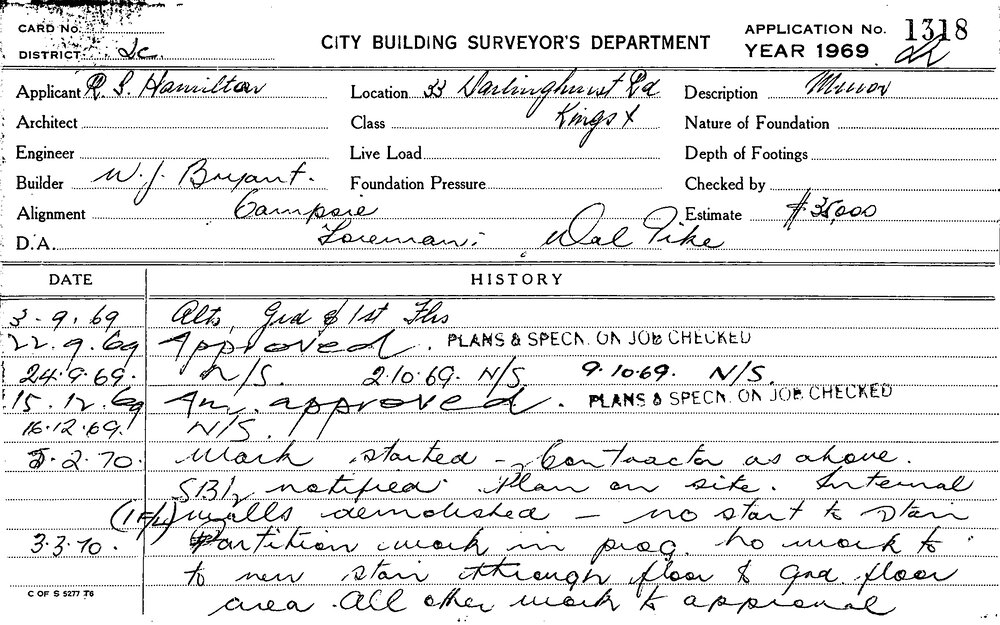 CARD No.
DISTRICT 2c.
CITY BUILDING SURVEYOR'S DEPARTMENT
APPLICATION No. 1318
YEAR 1969
Applicant R. S. Hamilton
Location 33 Darlinghurst Rd
Description Minor
Architect
Class Kings X
Nature of Foundation
Engineer
Live Load
Depth of Footings
Builder W. J. Bryant.
Foundation Pressure
Checked by
Alignment Campsie
Estimate $35,000
D.A. Foreman: Wal Pike
DATE HISTORY
3-9-69 Alts, Grd & 1st Flrs
22.9.69 Approved. PLANS & SPECN. ON JOB CHECKED
24.9.69. N/S. 2.10.69. N/S. 9.10.69. N/S.
15.12.69 Am. approved. PLANS & SPECN. ON JOB CHECKED
16.12.69. N/S.
5.2.70. Work started - Contractor as above.
notified. Plan on site. Internal
walls demolished - no start to stair
3.3.70. Partition work in prog. No work to
to new stair through floor to Gnd. floor
area. All other work to approval
C OF S 5277 T6